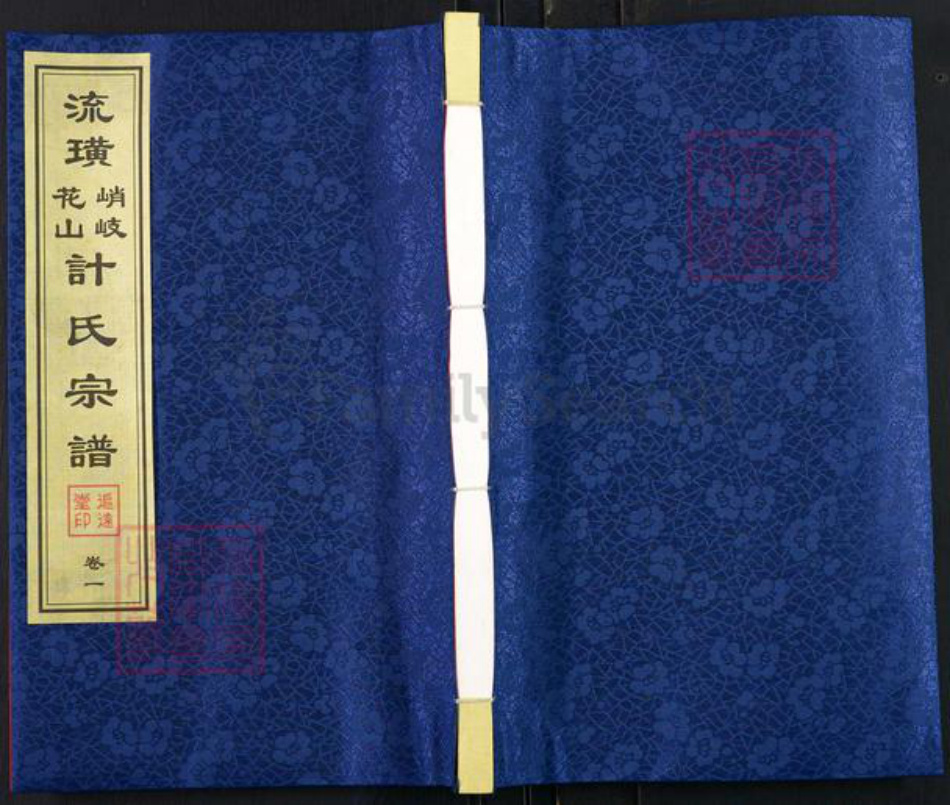 流璜
峭岐
花山
計氏宗譜
追遠
堂印
卷一
FamilySearch